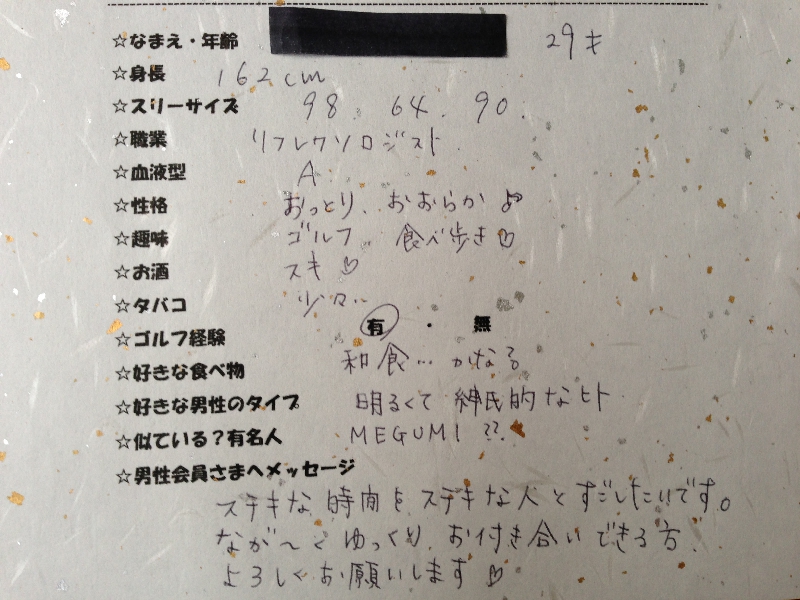 ☆なまえ・年齢 29才
☆身長 162cm
☆スリーサイズ 98. 64. 90.
☆職業 リフレクソロジスト
☆血液型 A
☆性格 おっとり、おおらか♪
☆趣味 ゴルフ 食べ歩き♡
☆お酒 スキ♡
☆タバコ 少々..
☆ゴルフ経験 有 ・ 無
☆好きな食べ物 和食…かなる
☆好きな男性のタイプ 明るくて 紳氏的なヒト
☆似ている？有名人 MEGUMI ??
☆男性会員さまへメッセージ
ステキな時間をステキな人とすごしたいです。
なが〜くゆっくり、お付き合いできる方、
よろしくお願いします♡